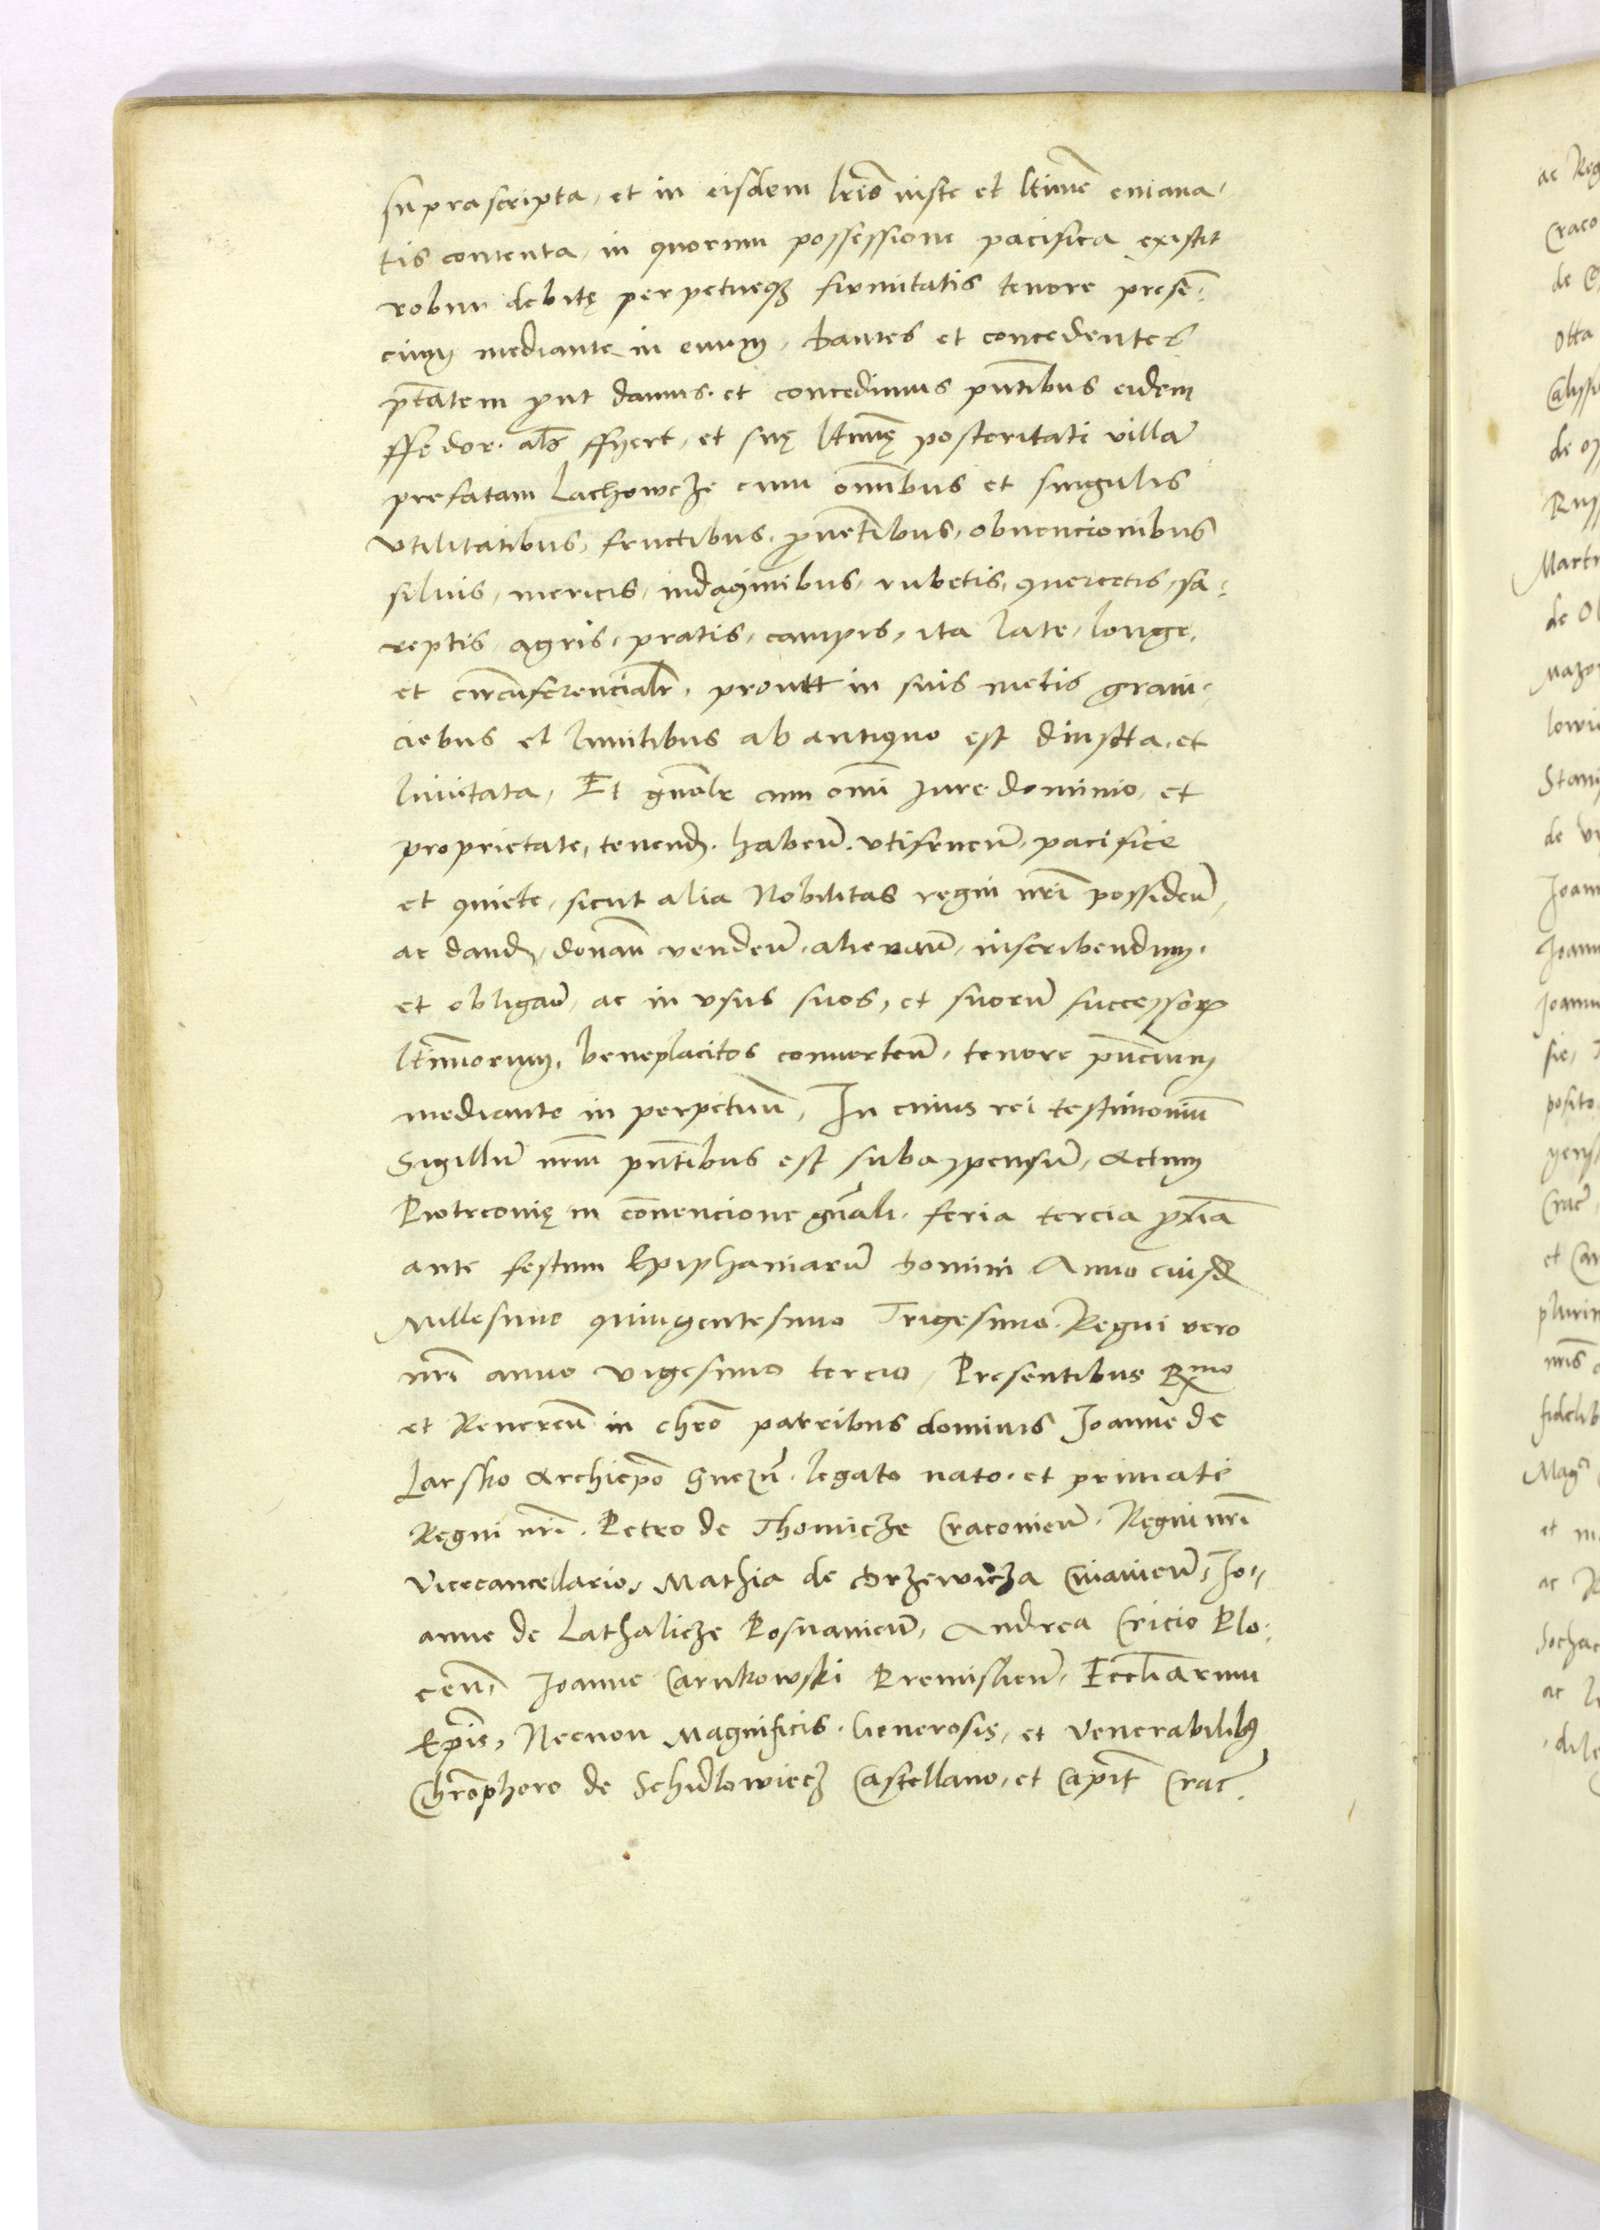 suprascripta, et in eisdem lr̃is iuste et ltime emana-
tis contenta, in quorum possessione pacifica existit
robur debitę perpetueqз firmitatis tenore presen-
cium mediante in eum, dantes et concedentes
ptãtem put damus. et concedimus pntibus eidem
ffedor. als ffyert, et suę ltimę posteritati villã
prefatam Lachowcze cum omnibus et singulis
vtilitatibus, fructibus, puẽtibus, obuencionibus
siluis, mericis, indaginibus, rubetis, quercetis, sa-
reptis agris, pratis, campis, ita late, longe,
et circũferencialr, proutt in suis metis grani-
ciebus et limitibus ab antiquo est distĩtta, et
limitata, Et gnalr cum omi Jure dominio, et
proprietate, tenend. habeñ. vtifrueñ, pacifice
et quiete, sicut alia Nobilitas regni nr̃i possideñ,
ac dand, donañ vendeñ. alienañ, inscribendum.
et obligañ, ac in vsus suos, et suorũ successorꝝ
ltimorum, beneplacitos conuerteñ, tenore pñcium
mediante in perpetuũ, In cuius rei testimoniũ
Sigillũ nr̃um pñtibus est subappensũ, Actum
Piotrconię in cõnencione gñali. feria tercia pxĩa
ante festum Epiphaniarũ Domini Anno eiusd
Millesimo quingentesimo Trigesimo. Regni vero
nr̃i anno vigesimo tercio, Presentibus Rmo
et Reuereñ in chr̃o patribus dominis Joanne de
Larsko Archiepõ Gnezñ. legato nato. et primate
Regni nr̃i. Petro de Thomicze Cracouieñ. Regni nr̃i
Vicecancellario, Mathia de Drzewicza Cuiauieñ, Jo-
anne de Lathalicze Posnanieñ, Andrea Cricio Plo-
ceñ, Joanne Carnkowski Premislieñ, Eccliarum
Epis, Necnon Magnificis. Generosis, et Venerabilibꝰ
Chr̃ophoro de Schidlowiecz Castellano, et Capit Crac̃.